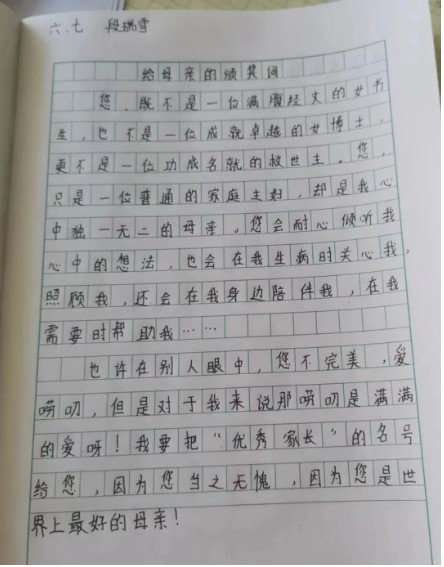 六.七 段瑞雪
给母亲的颁奖词
您，既不是一位满腹经文的女书
生，也不是一位成就卓越的女博士，
更不是一位功成名就的救世主。您，
只是一位普通的家庭主妇，却是我心
中独一无二的母亲。您会耐心倾听我
心中的想法，也会在我生病时关心我，
照顾我，还会在我身边陪伴我，在我
需要时帮助我……
也许在别人眼中，您不完美，爱
唠叨，但是对于我来说那唠叨是满满
的爱呀！我要把“优秀家长”的名号
给您，因为您当之无愧，因为您是世
界上最好的母亲！